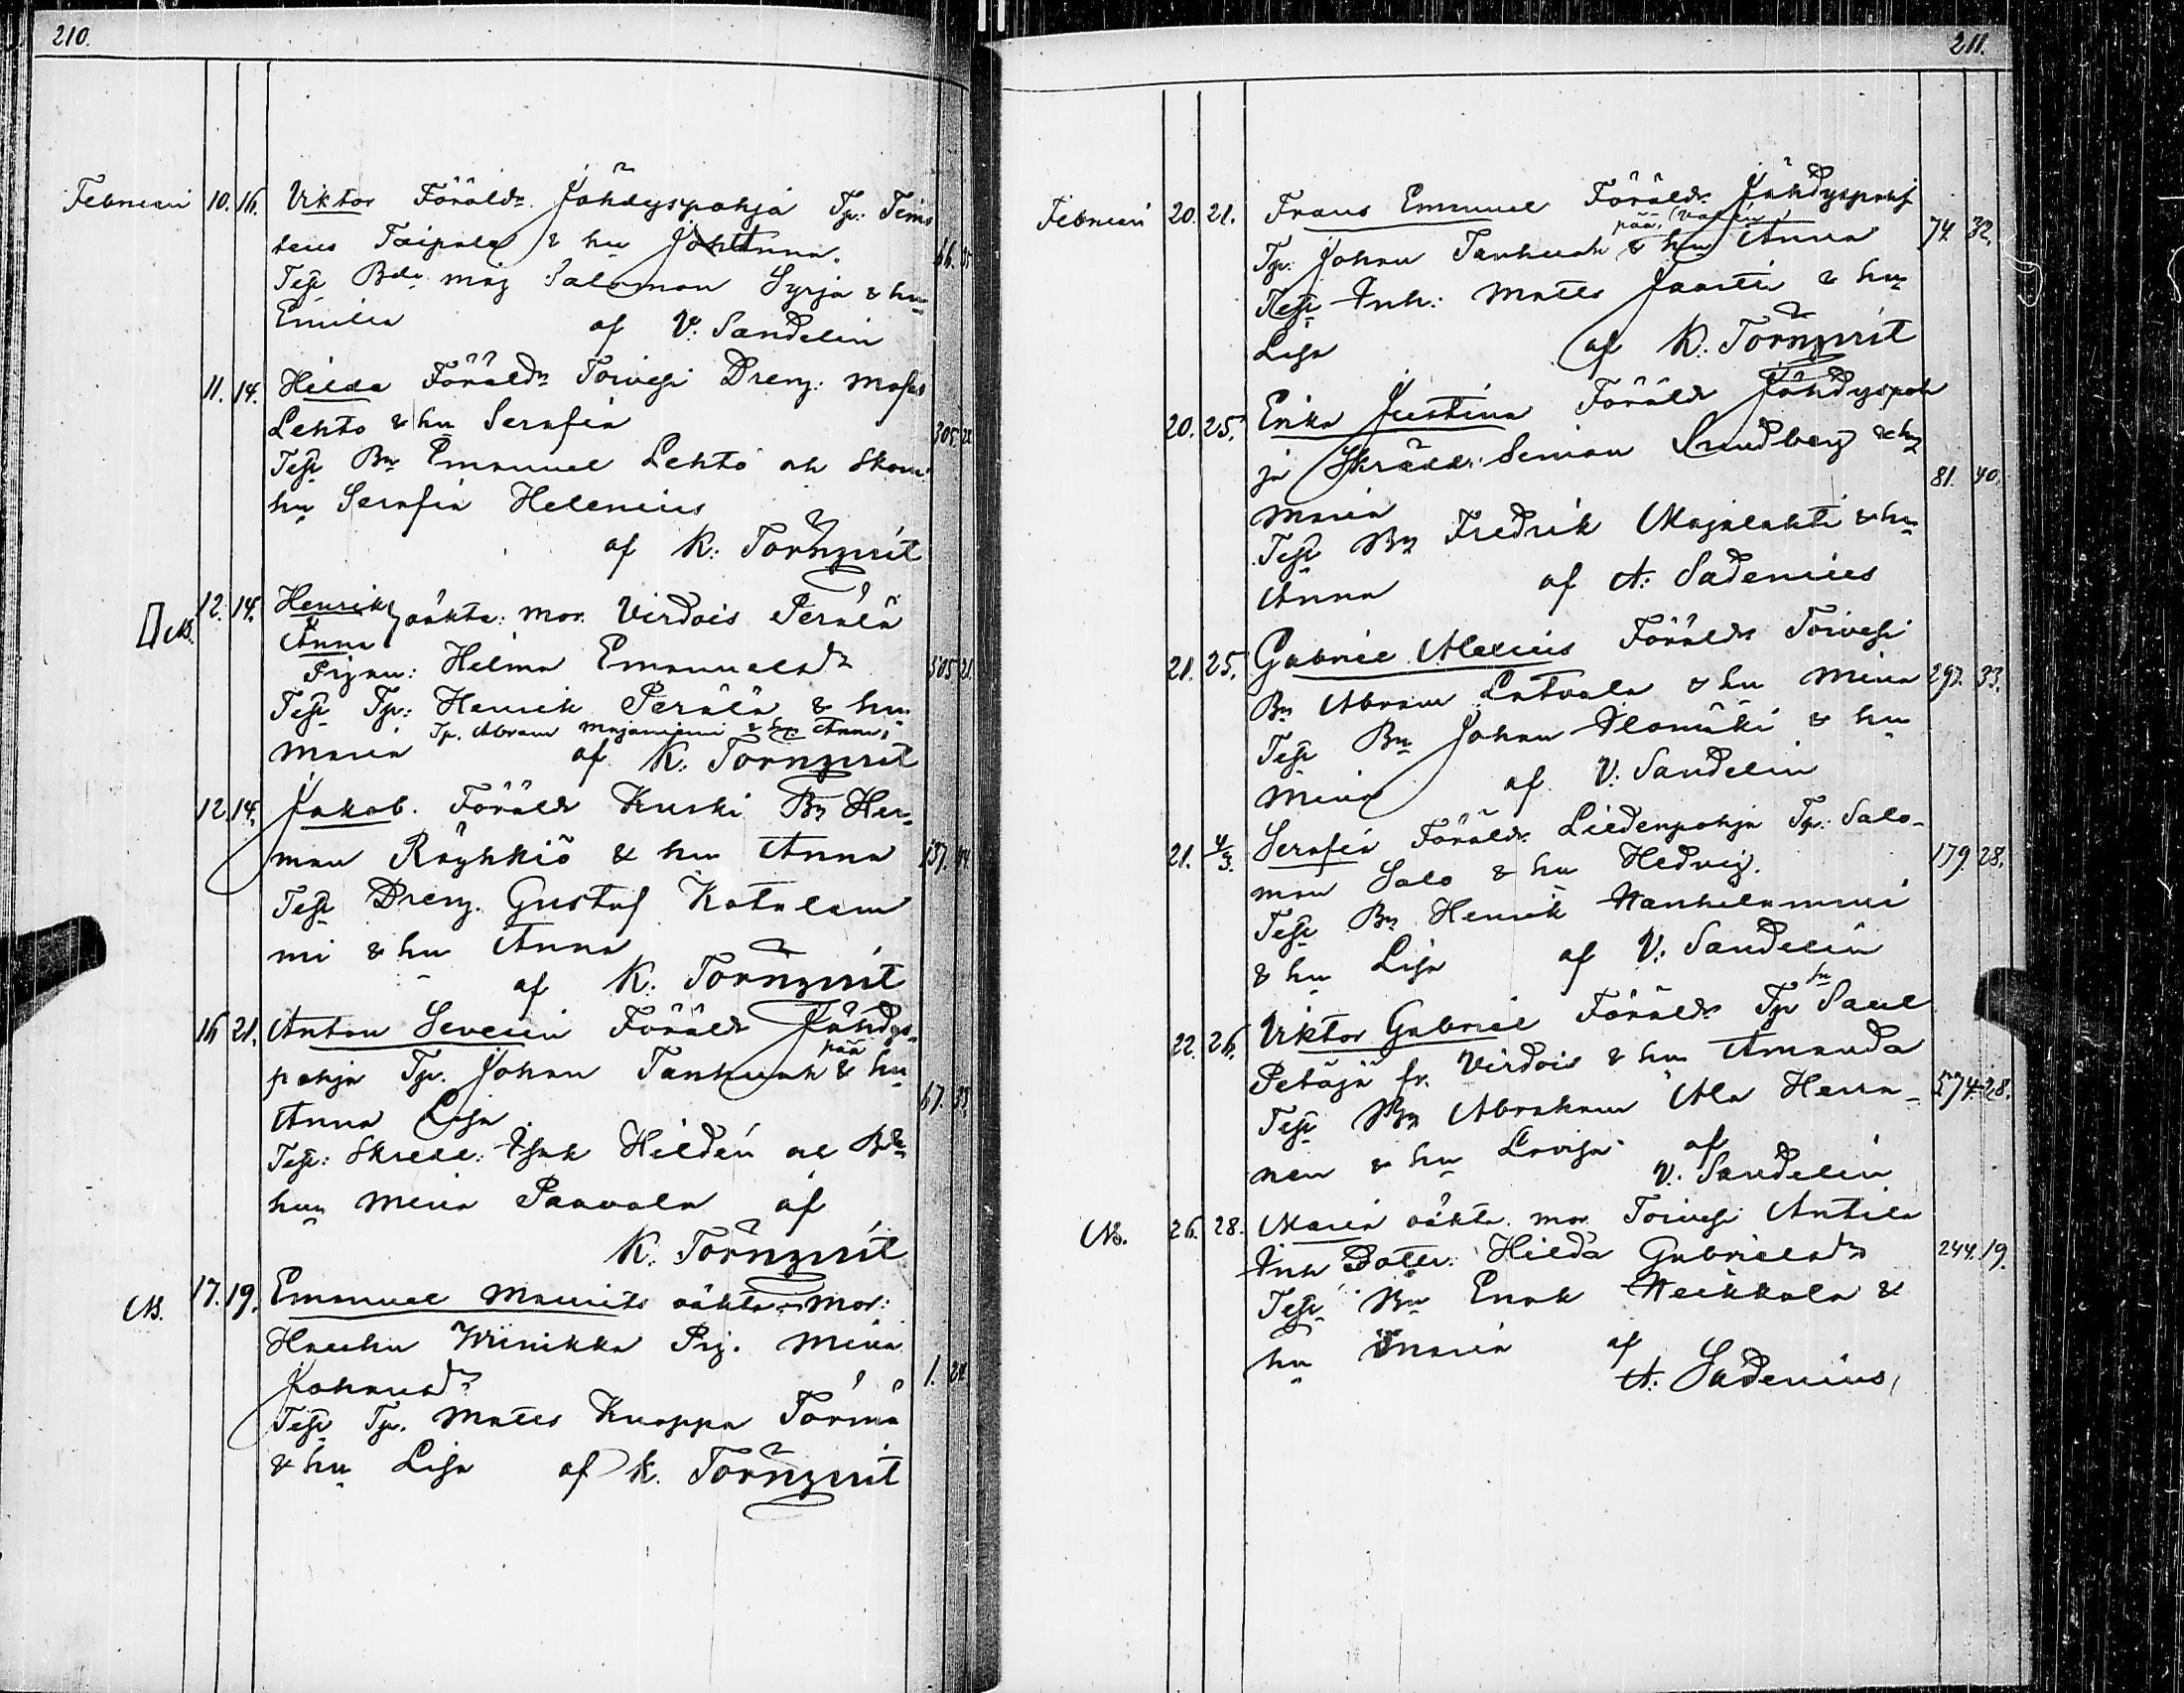 210.
Februari 10. 16. Viktor Föräldr. Jähdyspohja Tp: Temis
teus Taipale & hu Johanna. 66. 35
Test Bde måg Salomon Syrja & hu
Emilia af V. Sandelin
11. 14. Hilda Föräldr Toivesi Dreng: Moses
Lehto & hu Serafia 305. 22
Test Bn Emanuel Lehto och Skom:
hu Serafia Helenius
af K: Törnqvist
NB. 12. 14. Henrik
Anna } oäkta: mor. Virdois Perälä
Pigan: Helma Emanuelsdr 505 21.
Test Tp: Henrik Perälä & hu
Tp. Abram Majaniemi & hu Anna,
Maria af K. Törnqvist
12. 14. Jakob. Föräldr Kurki Bn Her-
man Räyhkiö & hu Anna 137. 44
Test Dreng. Gustaf Katalam
mi & hu Anna
af K. Törnqvist
16 21. Anton Severin Föräldr Jähdys-
pohja Tp. Johan Tanhuan pää & hu 67. 35.
Anna Lisa
Test: Skredd: Isak Hildén och Bde
hun Mina Paavola af
K. Törnqvist
NB. 17. 19. Emanuel Maurits oäkta. Mor:
Hauhu Wiinikka Pig. Mina 1.
Johansdr
Test Tp. Matts Kuoppa Törmä
& hu Lisa af K. Törnqvist
211.
Februari 20. 21. Frans Emanuel Föräldr Jähdyspohj
Tp: Johan Tanhuan pää & hu Anna 74. 32.
Test Inh: Matts Jaarti & hu
Lisa af K. Törnqvist
20. 25. Erika Justina Föräldr Jähdyspoh
ja Skrädd: Simon Sundberg & hu 81. 40.
Maria
Test Bn Fredrik Majalahti & hu
Anna af A. Sadenius
21. 25. Gabriel Alexius Föräldr Toivesi
Bn Abram Latvala & hu Mina 297. 33.
Test Bn Johan Ilomäki & hu
Mina af V. Sandelin
21. 4/3. Serafia Föräldr. Liedenpohja Tp: Salo-
mon Salo & hu Hedvig. 179. 28.
Test Bn Henrik Hanhilammi
& hu Lisa af V: Sandelin
22. 26. Viktor Gabriel Föräldr Tp sn Saul
Petäjä fr. Virdois & hu Amanda
Test Bn Abraham Ala Herra- 574. 28.
nen & hu Lovisa af
V. Sandelin
NB. 26. 28. Maria oäkta. mor. Toivesi Antila
Inh Dotter: Hilda Gabrielsdr 244. 19.
Test Bn Enok Heikkala &
hu Maria af
A. Sadenius,